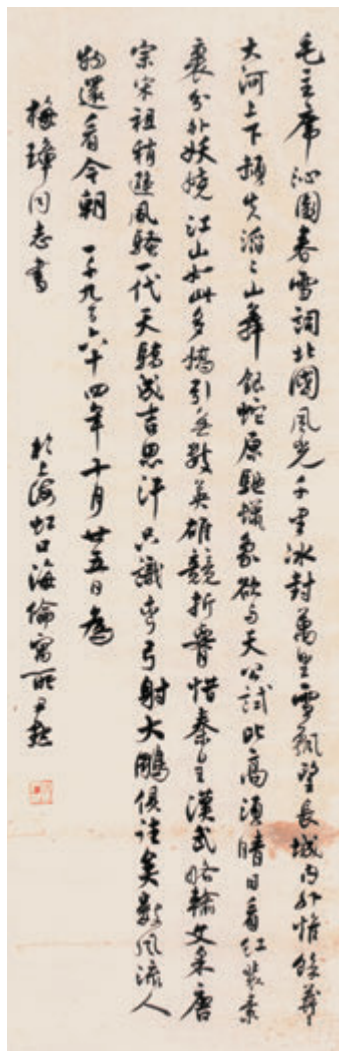 毛主席沁園春雪詞北國風光千里冰封萬里雪飄望長城內外惟餘莽
大河上下頓失滔々山舞銀蛇原馳蠟象欲与天公試比高須晴日看紅裝素
裹分外妖嬈江山如此多嬌引無數英雄競折腰惜秦皇漢武略輸文采唐
宗宋祖稍遜風騷一代天驕成吉思汗只識彎弓射大鵰俱往矣數風流人
物還看今朝一千九百六十四年十月廿五日為
梅璋同志書
於上海虹口海倫寓所尹默